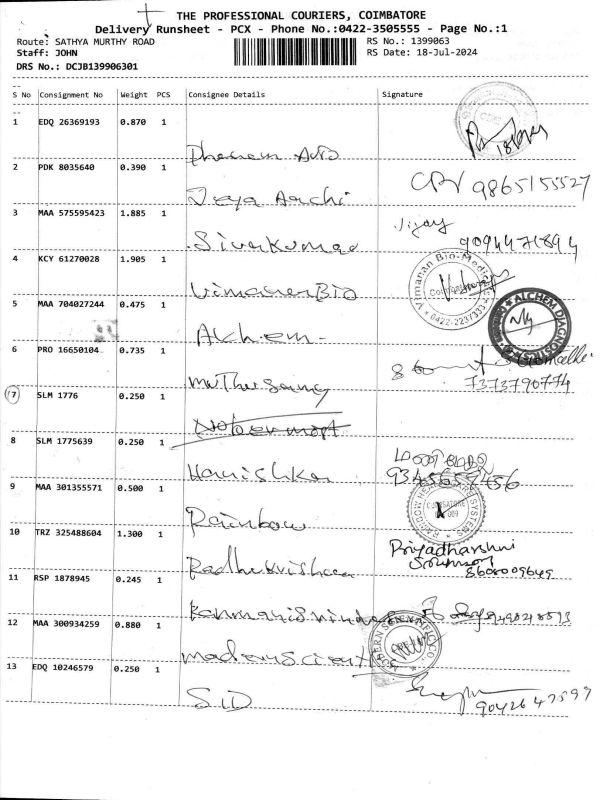 THE PROFESSIONAL COURIERS, COIMBATORE
Delivery Runsheet - PCX - Phone No.:0422-3505555 - Page No.:1
Route: SATHYA MURTHY ROAD
RS No.: 1399063
Staff: JOHN
RS Date: 18-Jul-2024
DRS No.: DCJB139906301
S No Consignment No Weight PCS Consignee Details Signature
1 EDQ 26369193 0.870 1
2 PDK 8035640 0.390 1 Jeya Aachi 9865155527
3 MAA 575595423 1.885 1 Sivakumar Vijay
9094471894
4 KCY 61270028 1.905 1 Vimanan Bio
Vimanan Bio-Medi
0422-2237333
5 MAA 704027244 0.475 1 Alchem
ALCHEM DIAGNOSTICS
6 PRO 16650104 0.735 1 Muthusamy
7373790774
7 SLM 1776 0.250 1
8 SLM 1775639 0.250 1 Harishkar
9345659456
9 MAA 301355571 0.500 1 Rainbow
COIMBATORE
10 TRZ 325488604 1.300 1 Radhakrishnan Priyadharshni
8608009649
11 RSP 1878945 0.245 1
12 MAA 300934259 0.880 1 modern scientific
13 EDQ 10246579 0.250 1 SID
9042647599